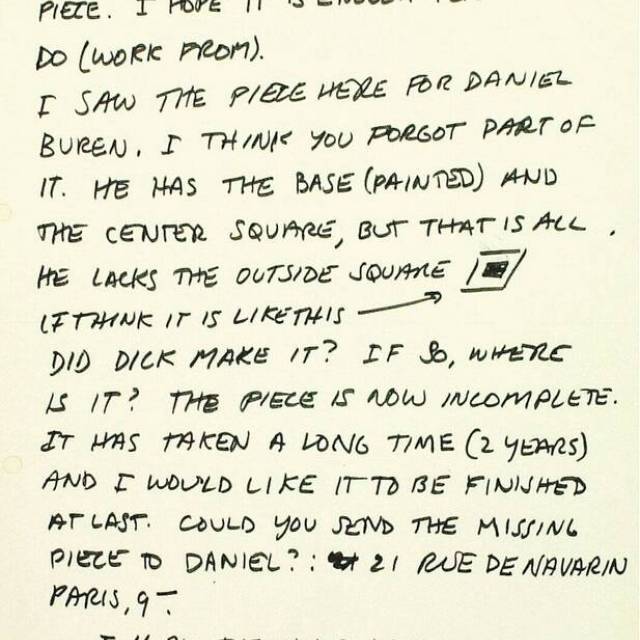 PIECE. I HOPE IT IS ENOUGH
DO (WORK FROM).
I SAW THE PIECE HERE FOR DANIEL
BUREN. I THINK YOU FORGOT PART OF
IT. HE HAS THE BASE (PAINTED) AND
THE CENTER SQUARE, BUT THAT IS ALL.
HE LACKS THE OUTSIDE SQUARE
I THINK IT IS LIKE THIS
DID DICK MAKE IT? IF SO, WHERE
IS IT? THE PIECE IS NOW INCOMPLETE.
IT HAS TAKEN A LONG TIME (2 YEARS)
AND I WOULD LIKE IT TO BE FINISHED
AT LAST. COULD YOU SEND THE MISSING
PIECE TO DANIEL?: 21 RUE DE NAVARIN
PARIS, 9-